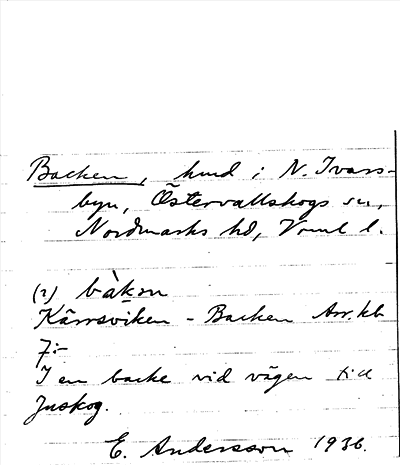 Backen, hmd i N. Ivars-
byn, Östervallskogs sn,
Nordmarks hd, Vrml l.
(2) bàkən
Kärrsviken - Backen Arr. kb
7:-
I en backe vid vägen till
Juskog.
E. Andersson 1936.